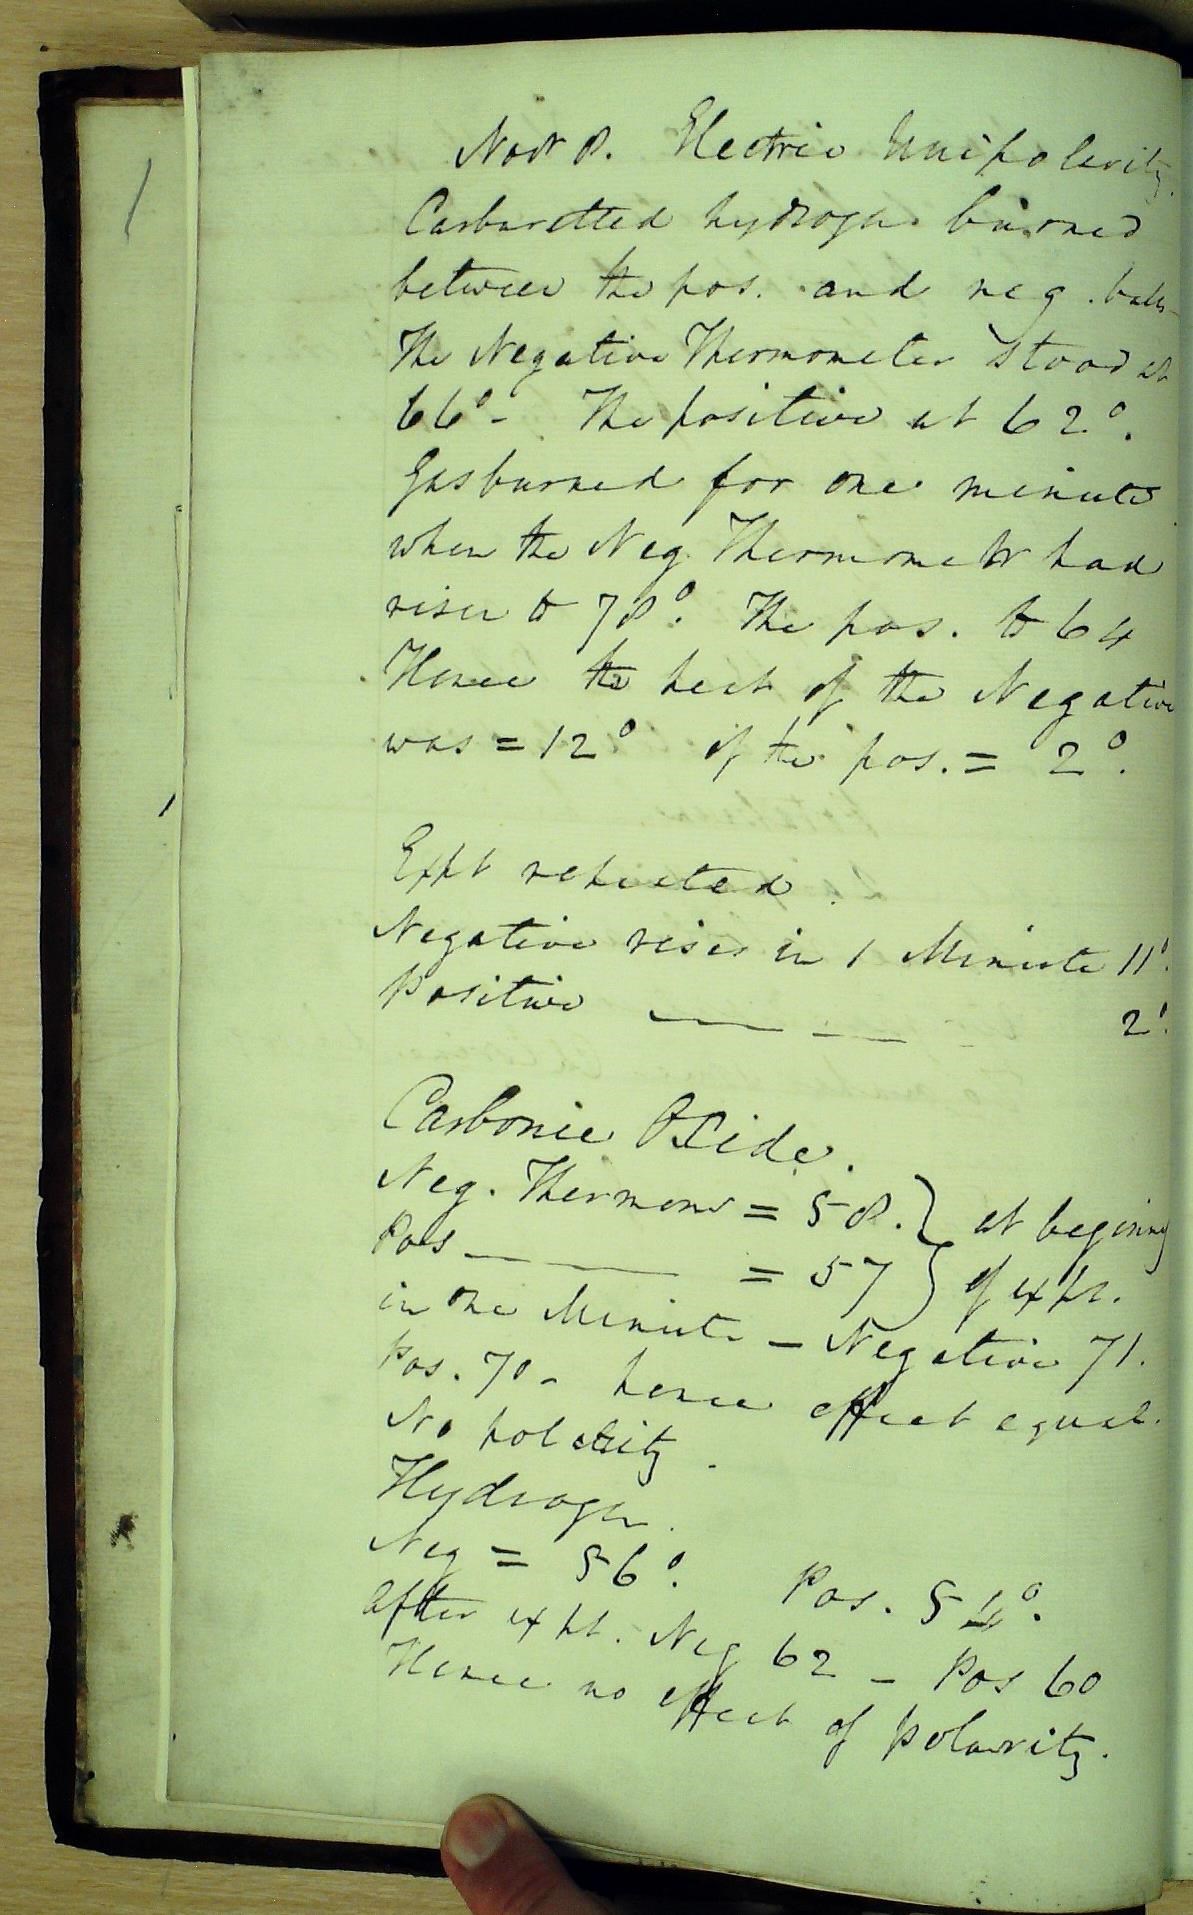 Novr 8. Electric Unipolarity.
Carburetted hydrogen burned
between the pos. and neg. balls
The Negative Thermometer stood at
66°- The positive at 62°.
Gas burned for one minute
when the Neg. Thermometr had
risen to 78°. The pos. to 64
Hence the heat of the Negative
was = 12° of the pos. = 2°.
Expt repeated.
Negative rises in 1 Minute 11°.
Positive ——— —— 2°.
Carbonic Oxide.
Neg. Thermomr = 58. } at begining
Pos ——— = 57 } of expt.
in one Minute – Negative 71.
Pos. 70 - hence effect equal.
No polarity.
Hydrogen.
Neg = 56°. Pos. 54°.
After expt. Neg 62 – Pos 60
Hence no effect of polarity.
1